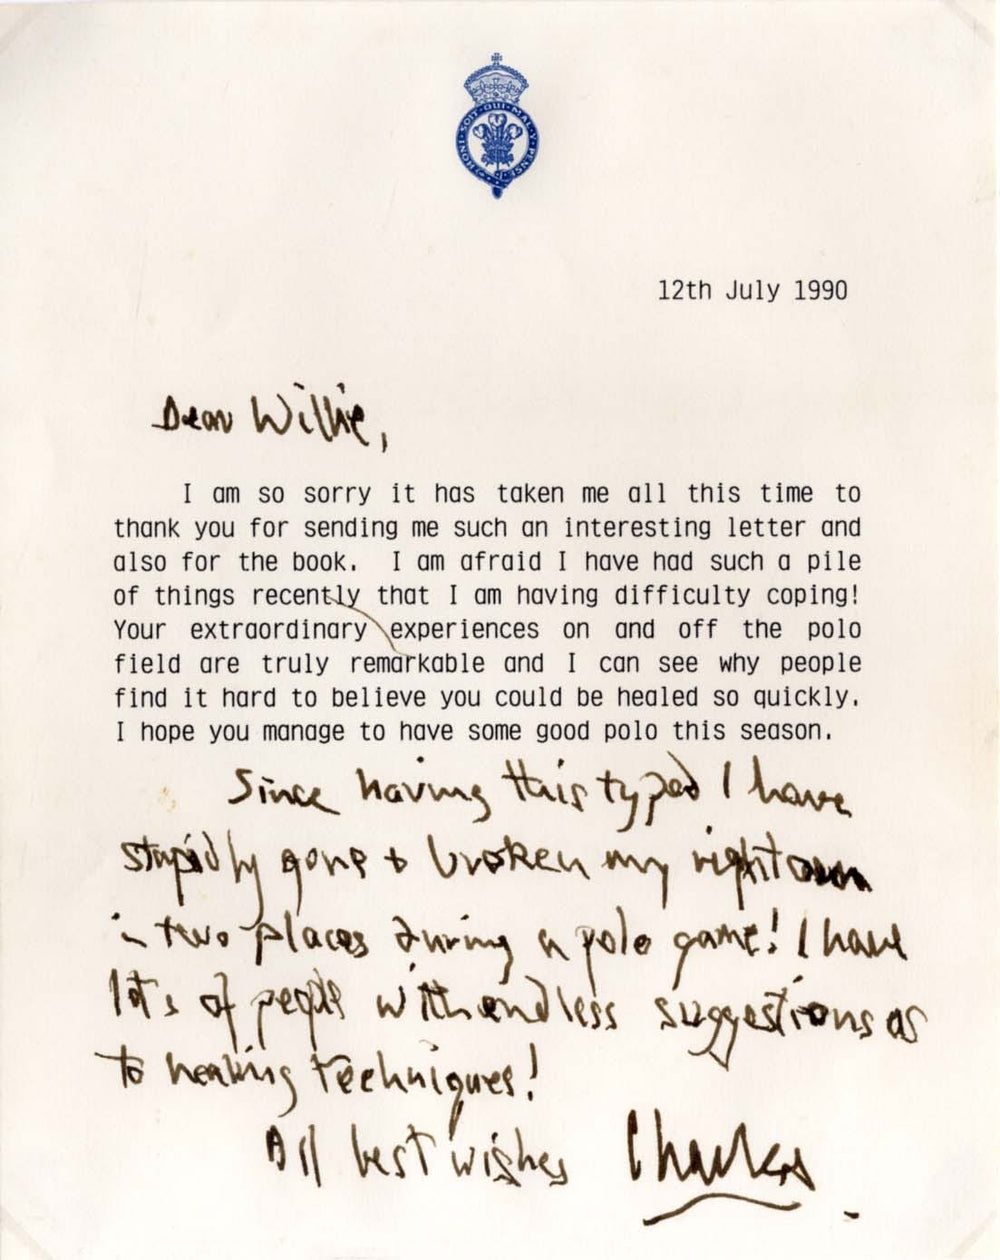 HONI · SOIT · QUI · MAL · Y · PENSE
12th July 1990
Dear Willie,
I am so sorry it has taken me all this time to
thank you for sending me such an interesting letter and
also for the book. I am afraid I have had such a pile
of things recently that I am having difficulty coping!
Your extraordinary experiences on and off the polo
field are truly remarkable and I can see why people
find it hard to believe you could be healed so quickly.
I hope you manage to have some good polo this season.
Since having this typed I have
stupidly gone & broken my right arm
in two places during a polo game! I have
lots of people with endless suggestions as
to healing techniques!
All best wishes Charles